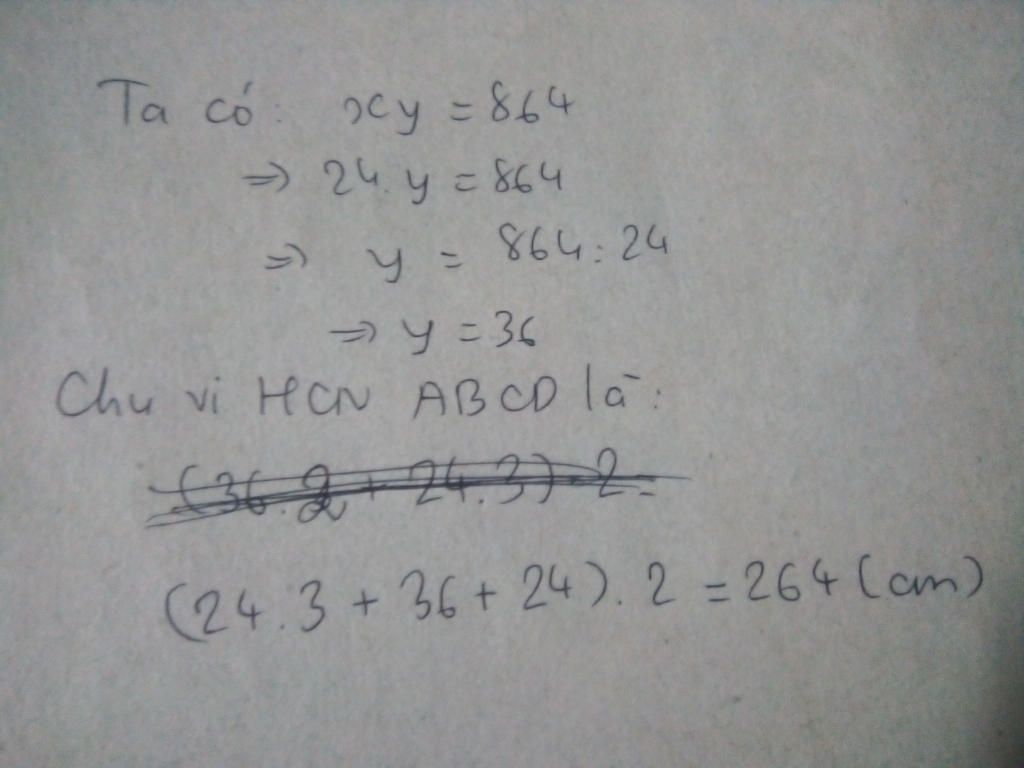 Ta có: xy = 864
=> 24.y = 864
=> y = 864:24
=> y = 36
Chu vi HCN ABCD là:
(36.2 + 24.3).2=
(24.3 + 36 + 24).2 = 264 (cm)